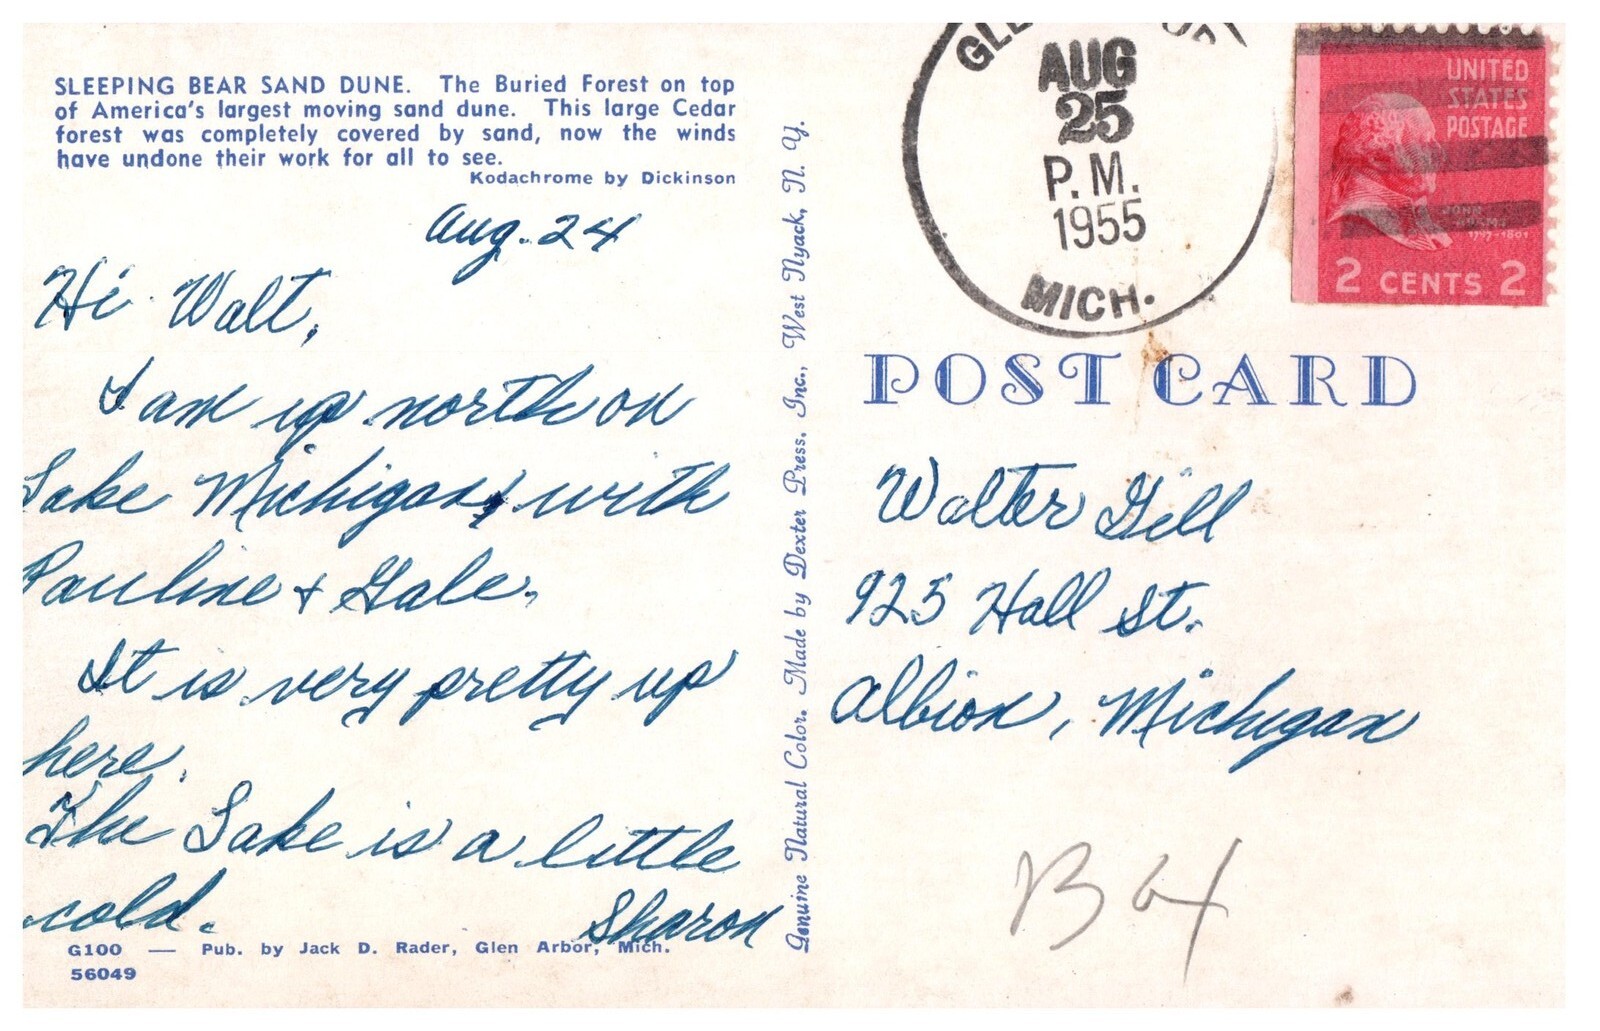 SLEEPING BEAR SAND DUNE. The Buried Forest on top
of America's largest moving sand dune. This large Cedar
forest was completely covered by sand, now the winds
have undone their work for all to see.
Kodachrome by Dickinson
Aug. 24
Hi Walt,
I am up north on
Lake Michigan, with
Pauline + Gale.
It is very pretty up
here.
The Lake is a little
cold.
Sharon
G100 — Pub. by Jack D. Rader, Glen Arbor, Mich.
56049
Genuine Natural Color. Made by Dexter Press, Inc., West Nyack, N. Y.
AUG
25
P. M.
1955
MICH.
UNITED
STATES
POSTAGE
JOHN
ADAMS
1797-1801
2 CENTS 2
POST CARD
Walter Gill
925 Hall St.
Albion, Michigan
B 64